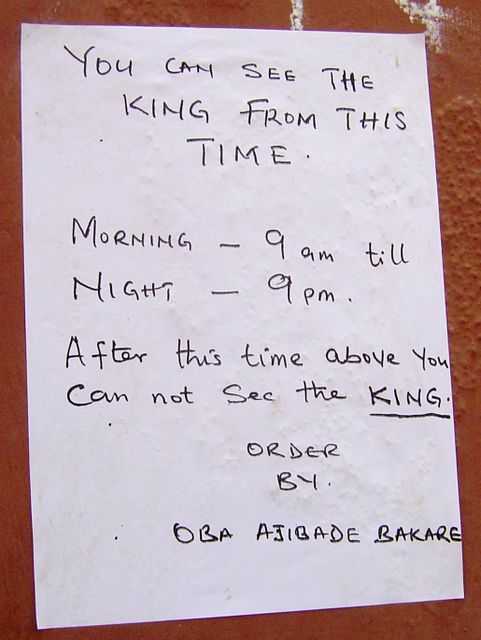 YOU CAN SEE THE
KING FROM THIS
TIME.
MORNING - 9 am till
NIGHT - 9 pm.
After this time above You
Can not See the KING.
ORDER
BY.
OBA AJIBADE BAKARE